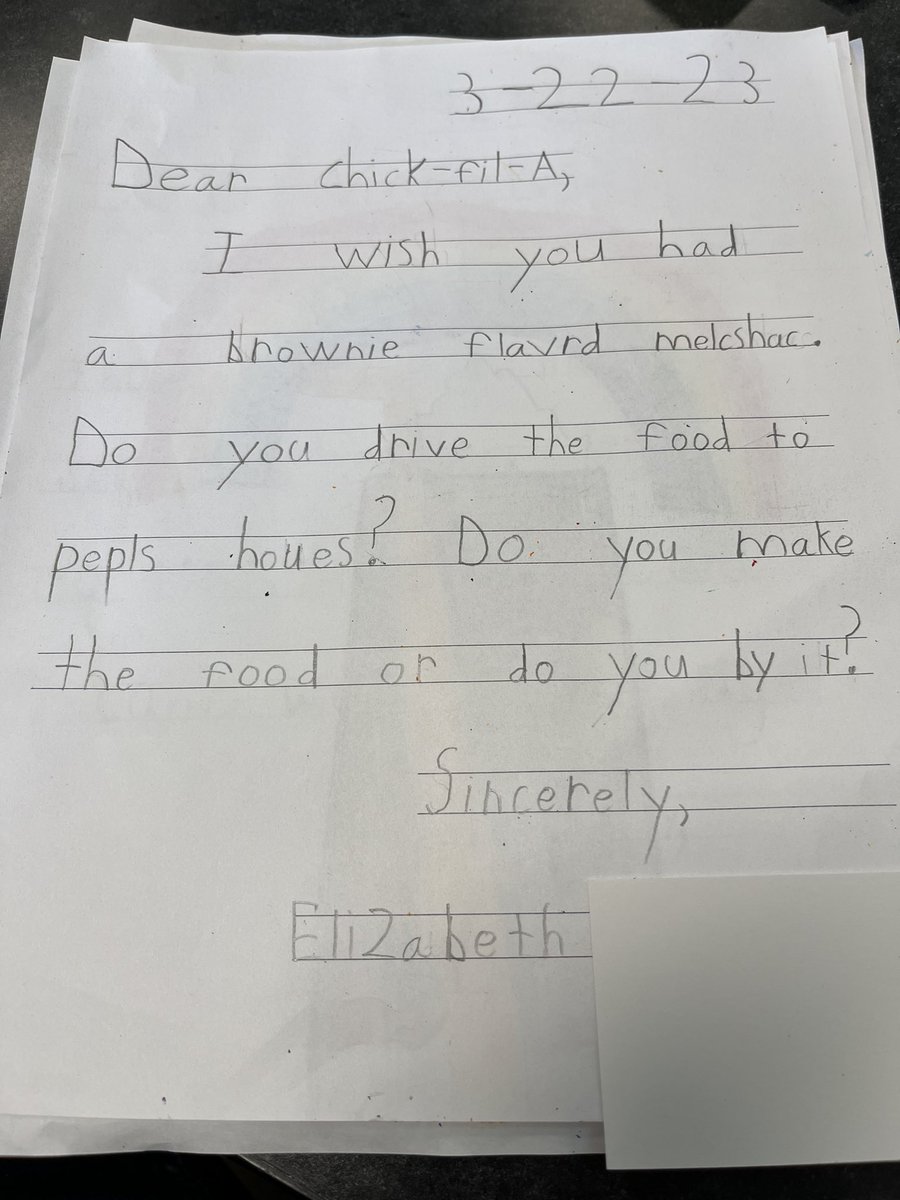 3-22-23
Dear Chick-fil-A,
I wish you had
a brownie flavrd melcshac.
Do you drive the food to
pepls houes? Do you make
the food or do you by it?
Sincerely,
Elizabeth